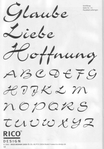 Glaube
Liebe
Hoffnung
ABCDEFG
HIJKL
MNOPQRS
TUVWXYZ
RICO
DESIGN